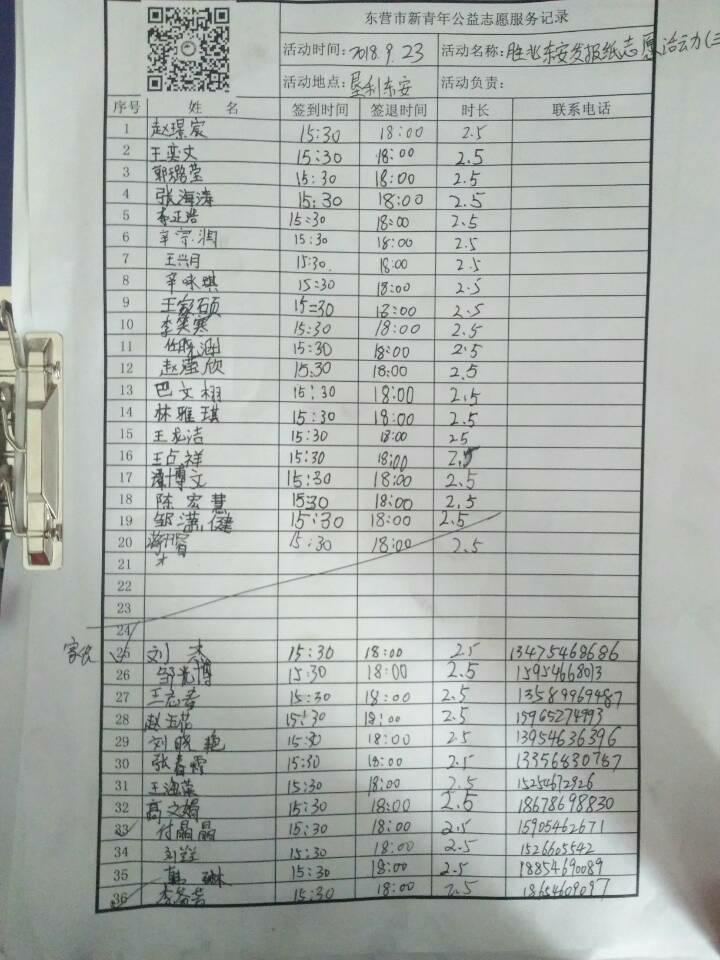 东营市新青年公益志愿服务记录
活动时间: 2018.9.23 活动名称: 胜兆东安发报纸志愿活动(三
活动地点: 垦利东安 活动负责:
序号 姓 名 签到时间 签退时间 时长 联系电话
1 赵璟宸 15:30 18:00 2.5
2 王奕丈 15:30 18:00 2.5
3 郭璐莹 15:30 18:00 2.5
4 张海涛 15:30 18:00 2.5
5 李正浩 15:30 18:00 2.5
6 辛宗润 15:30 18:00 2.5
7 王兴月 15:30 18:00 2.5
8 辛咏琪 15:30 18:00 2.5
9 王家硕 15:30 18:00 2.5
10 李奕寒 15:30 18:00 2.5
11 任晓涵 15:30 18:00 2.5
12 赵滢欣 15:30 18:00 2.5
13 巴文栩 15:30 18:00 2.5
14 林雅琪 15:30 18:00 2.5
15 王龙洁 15:30 18:00 2.5
16 王占祥 15:30 18:00 2.5
17 谢博文 15:30 18:00 2.5
18 陈宏慧 15:30 18:00 2.5
19 邹潇健 15:30 18:00 2.5
20 15:30 18:00 2.5
21
22
23
24
家长
25 刘杰 15:30 18:00 2.5 13475468686
26 邹光博 15:30 18:00 2.5 15954668013
27 王志孝 15:30 18:00 2.5 13589969487
28 赵玉花 15:30 18:00 2.5 15965274993
29 刘晓艳 15:30 18:00 2.5 13954636396
30 张春霞 15:30 18:00 2.5 13356830757
31 王海荣 15:30 18:00 2.5 15254672926
32 高文娟 15:30 18:00 2.5 18678698830
33 付晶晶 15:30 18:00 2.5 15905462671
34 15:30 18:00 2.5 1526605542
35 韩琳 15:30 18:00 2.5 18854690089
36 15:30 18:00 2.5 18654609097